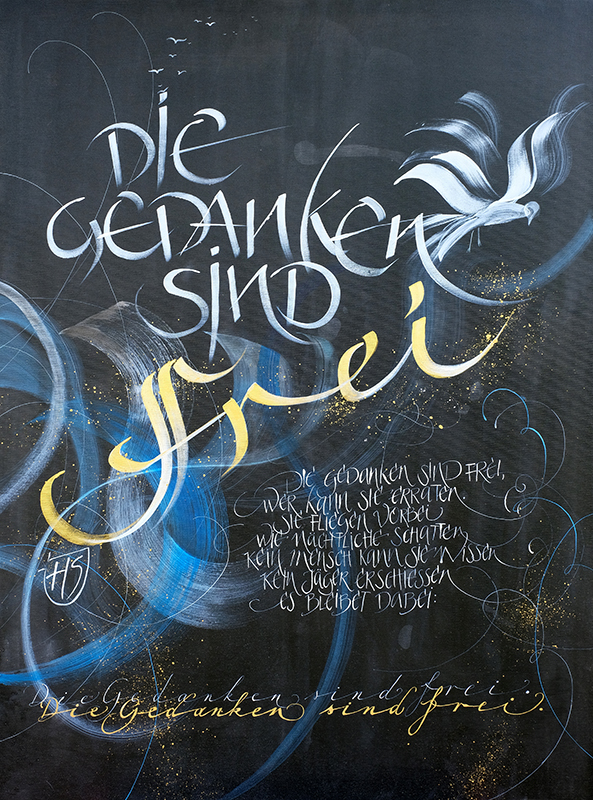 DIE
GEDANKEN
SIND
frei
DIE GEDANKEN SIND FREI,
WER KANN SIE ERRATEN.
SIE FLIEGEN VORBEI
WIE NÄCHTLICHE SCHATTEN
KEIN MENSCH KANN SIE WISSEN
KEIN JÄGER ERSCHIESSEN
ES BLEIBET DABEI:
HS
Die Gedanken sind frei.
Die Gedanken sind frei.